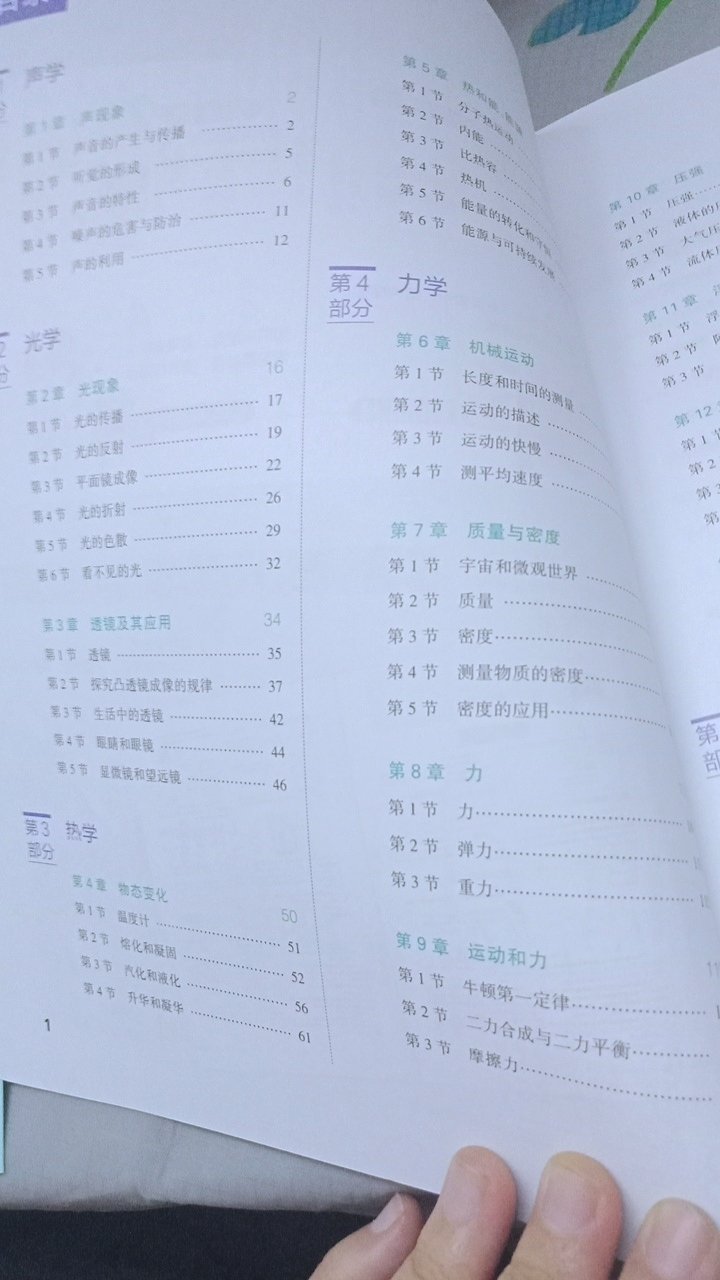 声学
第1章 声现象 2
第1节 声音的产生与传播 2
第2节 听觉的形成 5
第3节 声音的特性 6
第4节 噪声的危害与防治 11
第5节 声的利用 12
光学
第2章 光现象 16
第1节 光的传播 17
第2节 光的反射 19
第3节 平面镜成像 22
第4节 光的折射 26
第5节 光的色散 29
第6节 看不见的光 32
第3章 透镜及其应用 34
第1节 透镜 35
第2节 探究凸透镜成像的规律 37
第3节 生活中的透镜 42
第4节 眼睛和眼镜 44
第5节 显微镜和望远镜 46
第3部分 热学
第4章 物态变化 50
第1节 温度计 51
第2节 熔化和凝固 52
第3节 汽化和液化 56
第4节 升华和凝华 61
1
第5章 热和能
第1节 分子热运动
第2节 内能
第3节 比热容
第4节 热机
第5节 能量的转化和
第6节 能源与可持续发
第4部分 力学
第6章 机械运动
第1节 长度和时间的测量
第2节 运动的描述
第3节 运动的快慢
第4节 测平均速度
第7章 质量与密度
第1节 宇宙和微观世界
第2节 质量
第3节 密度
第4节 测量物质的密度
第5节 密度的应用
第8章 力
第1节 力
第2节 弹力
第3节 重力
第9章 运动和力
第1节 牛顿第一定律
第2节 二力合成与二力平衡
第3节 摩擦力
第10章 压强
第1节 压强
第2节 液体的
第3节 大气压
第4节 流体
第11章
第1节 浮
第2节
第3节
第12
第1节
第2
第3
第
第
部